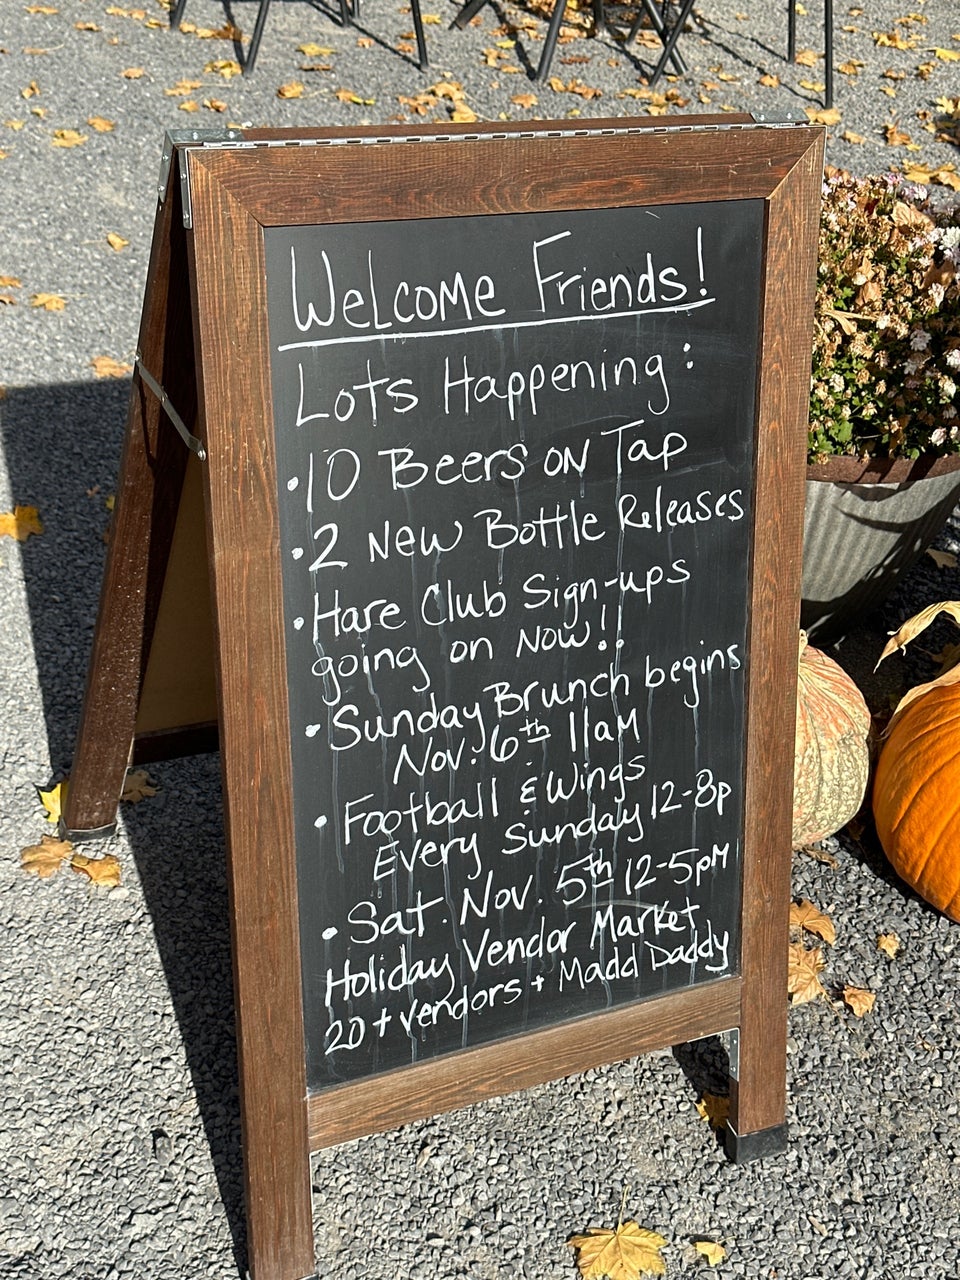 Welcome Friends!
Lots Happening:
• 10 Beers on Tap
• 2 New Bottle Releases
• Hare Club Sign-ups
going on now!!
• Sunday Brunch begins
Nov. 6th 11am
• Football & Wings
Every Sunday 12-8p
• Sat. Nov. 5th 12-5pm
Holiday Vendor Market
20+ vendors + Madd Daddy